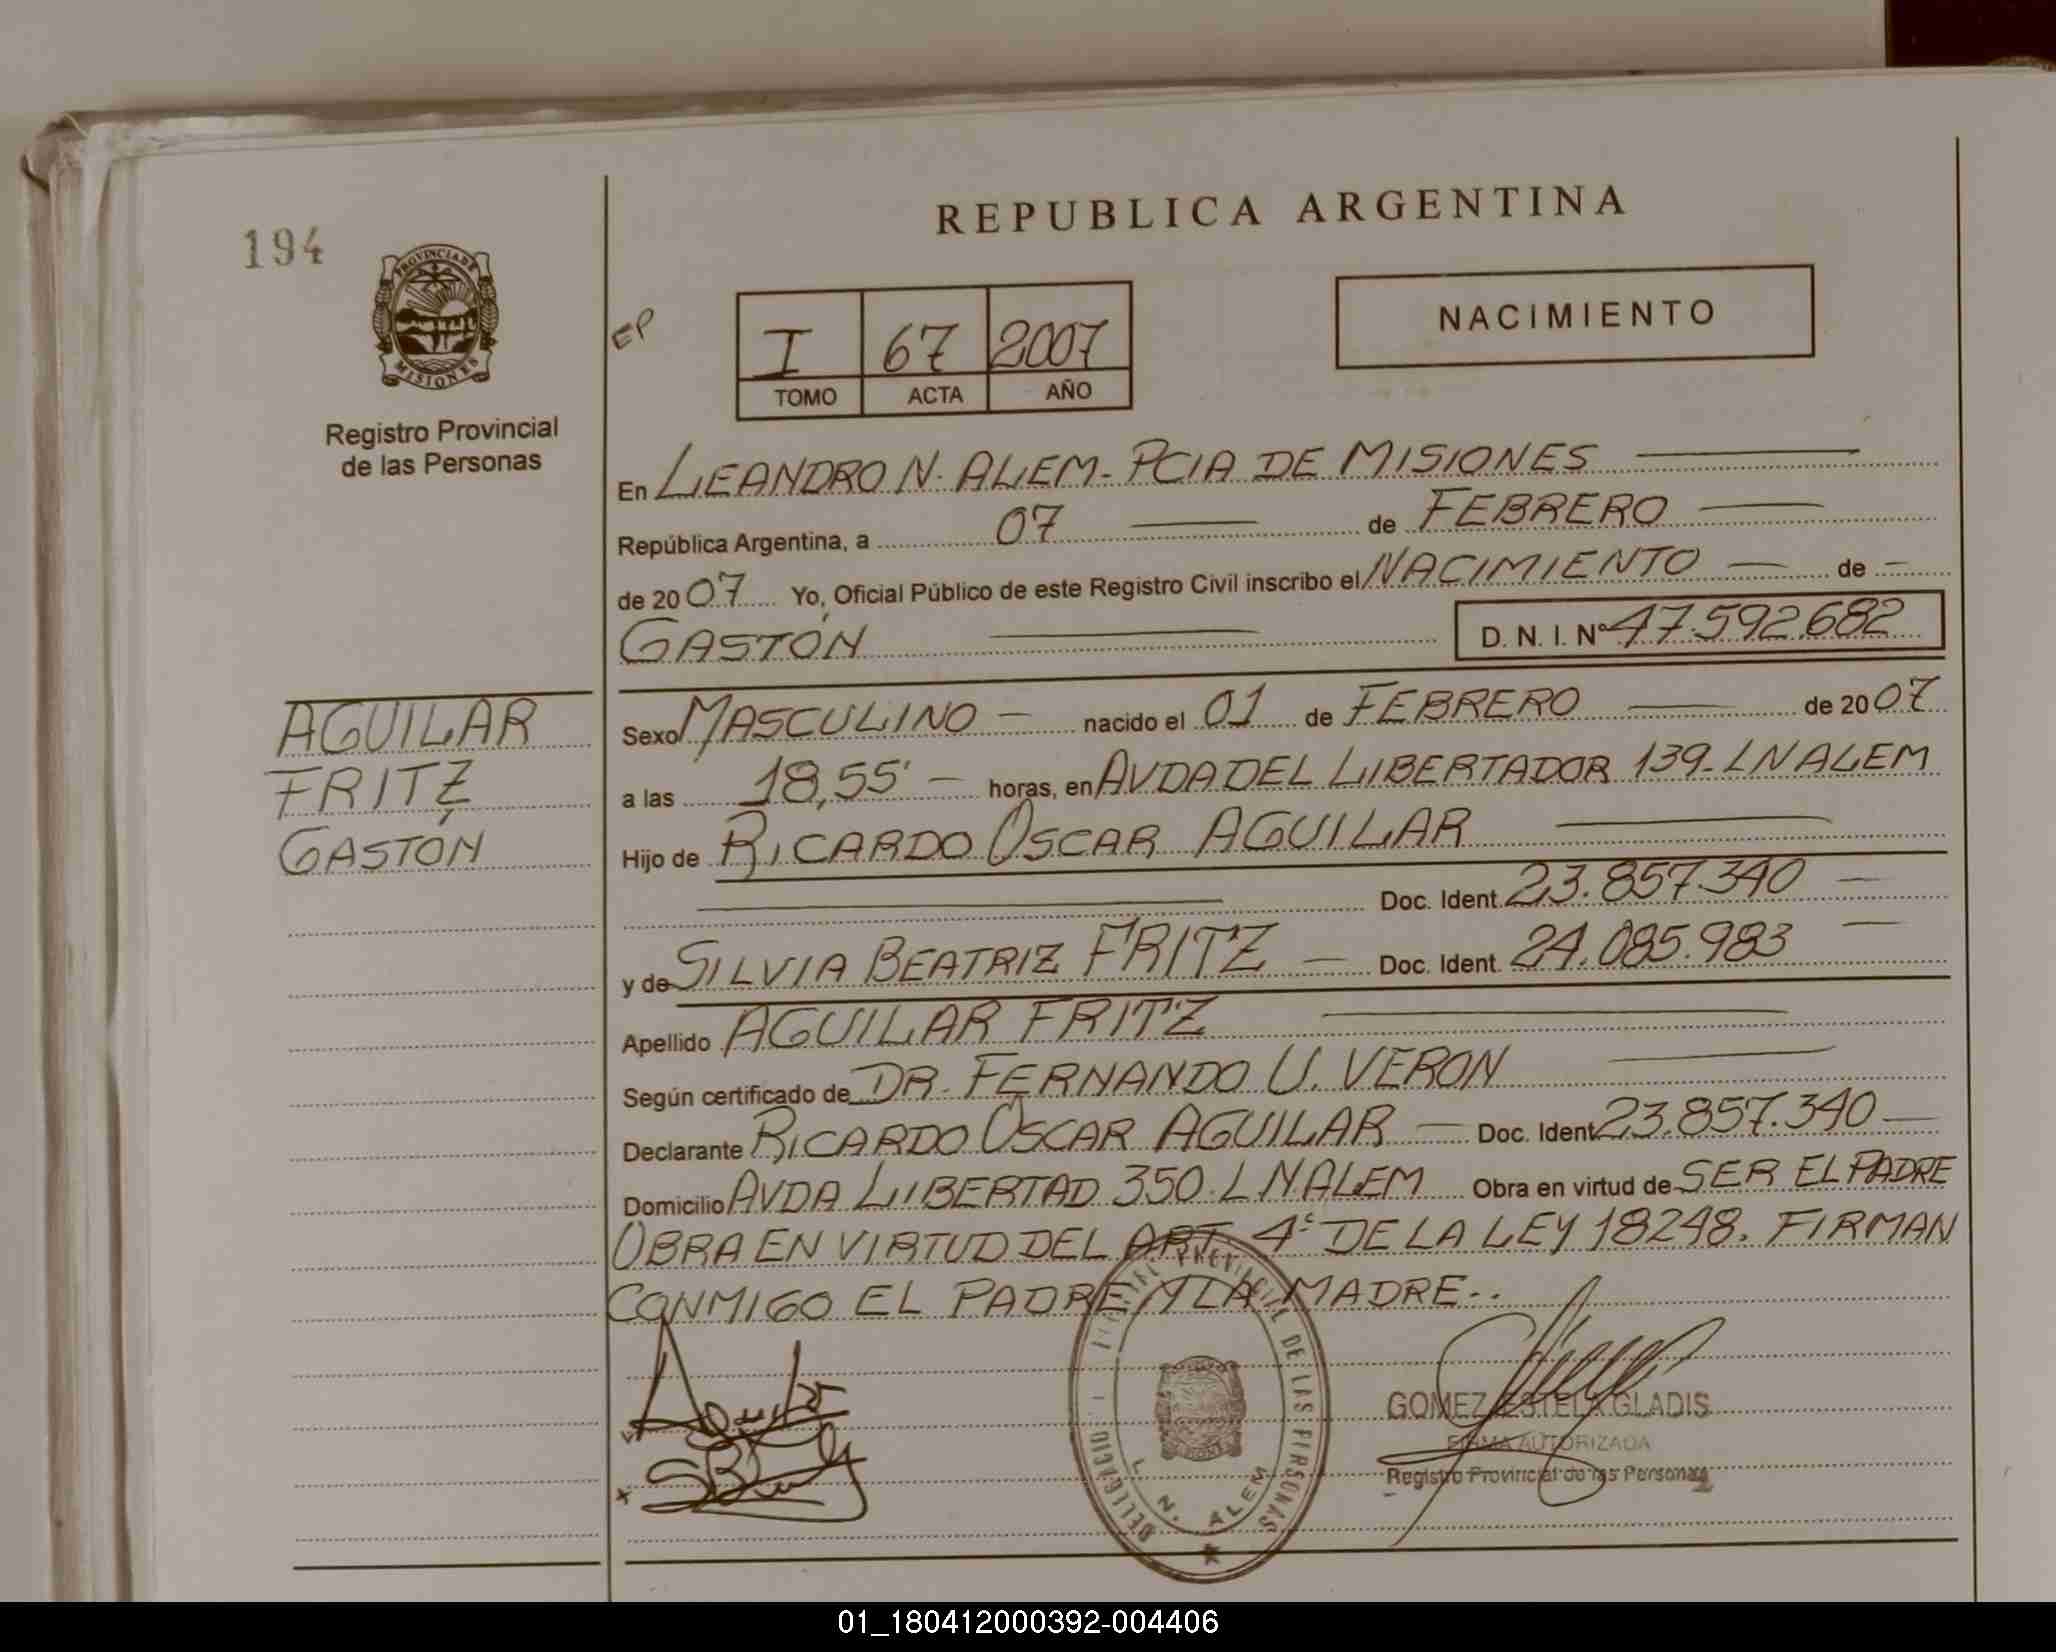 REPUBLICA ARGENTINA
194
PROVINCIA DE
MISIONES
Registro Provincial
de las Personas
EP
I 67 2007
TOMO ACTA AÑO
NACIMIENTO
En LEANDRO N. ALEM - PCIA DE MISIONES
República Argentina, a 07 de FEBRERO
de 2007 Yo, Oficial Público de este Registro Civil inscribo el NACIMIENTO de -
GASTÓN D. N. I. Nº 47.592.682
AGUILAR
FRITZ
GASTÓN
Sexo MASCULINO - nacido el 01 de FEBRERO de 2007
a las 18,55' - horas, en AVDA DEL LIBERTADOR 139 - L N ALEM
Hijo de RICARDO OSCAR AGUILAR
Doc. Ident. 23.857.340 -
y de SILVIA BEATRIZ FRITZ - Doc. Ident. 24.085.983 -
Apellido AGUILAR FRITZ
Según certificado de DR. FERNANDO U. VERON
Declarante RICARDO OSCAR AGUILAR - Doc. Ident 23.857.340 -
Domicilio AVDA LIBERTAD 350. L N ALEM Obra en virtud de SER EL PADRE
OBRA EN VIRTUD DEL ART. 4º DE LA LEY 18248. FIRMAN
CONMIGO EL PADRE Y LA MADRE..
PROVINCIAL DE LAS PERSONAS
L. N. ALEM
GOMEZ ESTELA GLADIS
FIRMA AUTORIZADA
Registro Provincial de las Personas
01_180412000392-004406